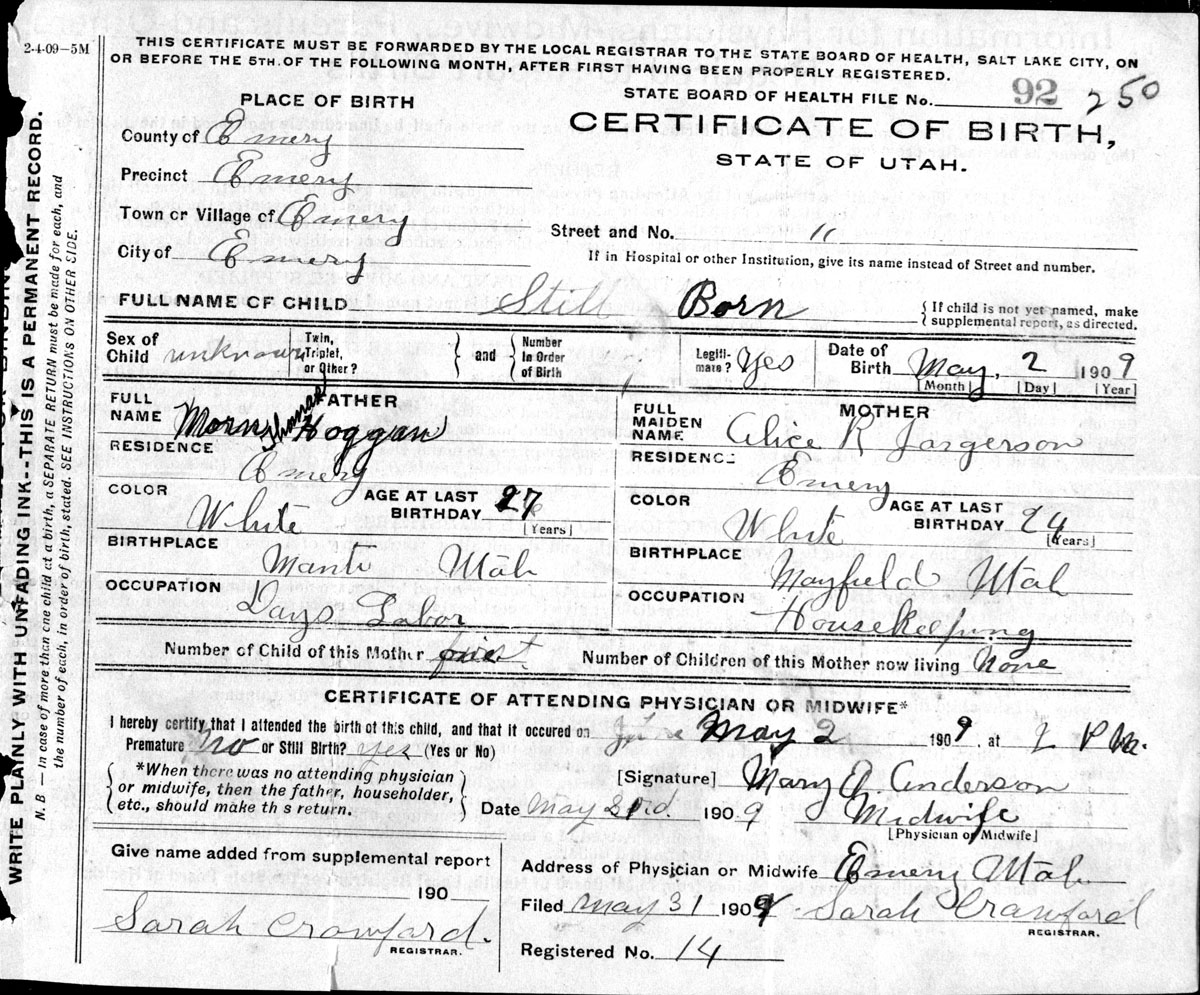 2-4-09-5M
THIS CERTIFICATE MUST BE FORWARDED BY THE LOCAL REGISTRAR TO THE STATE BOARD OF HEALTH, SALT LAKE CITY, ON
OR BEFORE THE 5TH. OF THE FOLLOWING MONTH, AFTER FIRST HAVING BEEN PROPERLY REGISTERED.
STATE BOARD OF HEALTH FILE No. 92 250
CERTIFICATE OF BIRTH,
STATE OF UTAH.
PLACE OF BIRTH
County of Emery
Precinct Emery
Town or Village of Emery
City of Emery
Street and No. "
If in Hospital or other Institution, give its name instead of Street and number.
FULL NAME OF CHILD Still Born
{If child is not yet named, make
supplemental report, as directed.
Sex of Child unknown
Twin, Triplet, or Other? } and { Number In Order of Birth
Legitimate? Yes
Date of Birth May, 2 1909
[Month] [Day] [Year]
FATHER
FULL NAME Hoggan
RESIDENCE Emery
COLOR White
AGE AT LAST BIRTHDAY 27 [Years]
BIRTHPLACE Manti Utah
OCCUPATION Days Labor
MOTHER
FULL MAIDEN NAME Alice R Jorgerson
RESIDENCE Emery
COLOR White
AGE AT LAST BIRTHDAY 24 [Years]
BIRTHPLACE Mayfield Utah
OCCUPATION Housekeeping
Number of Child of this Mother first
Number of Children of this Mother now living None
CERTIFICATE OF ATTENDING PHYSICIAN OR MIDWIFE*
I hereby certify that I attended the birth of this child, and that it occured on May 2 1909, at 2 P M.
Premature No or Still Birth? yes (Yes or No)
{ *When there was no attending physician
or midwife, then the father, householder,
etc., should make th s return. }
[Signature] Mary A. Anderson
Date May 1909 Midwife
[Physician or Midwife]
Give name added from supplemental report
190
Sarah Crawford.
REGISTRAR.
Address of Physician or Midwife Emery Utah
Filed May 31 1909 Sarah Crawford
REGISTRAR.
Registered No. 14
WRITE PLAINLY WITH UNFADING INK--THIS IS A PERMANENT RECORD.
N. B — In case of more than one child at a birth, a SEPARATE RETURN must be made for each, and
the number of each, in order of birth, stated. SEE INSTRUCTIONS ON OTHER SIDE.